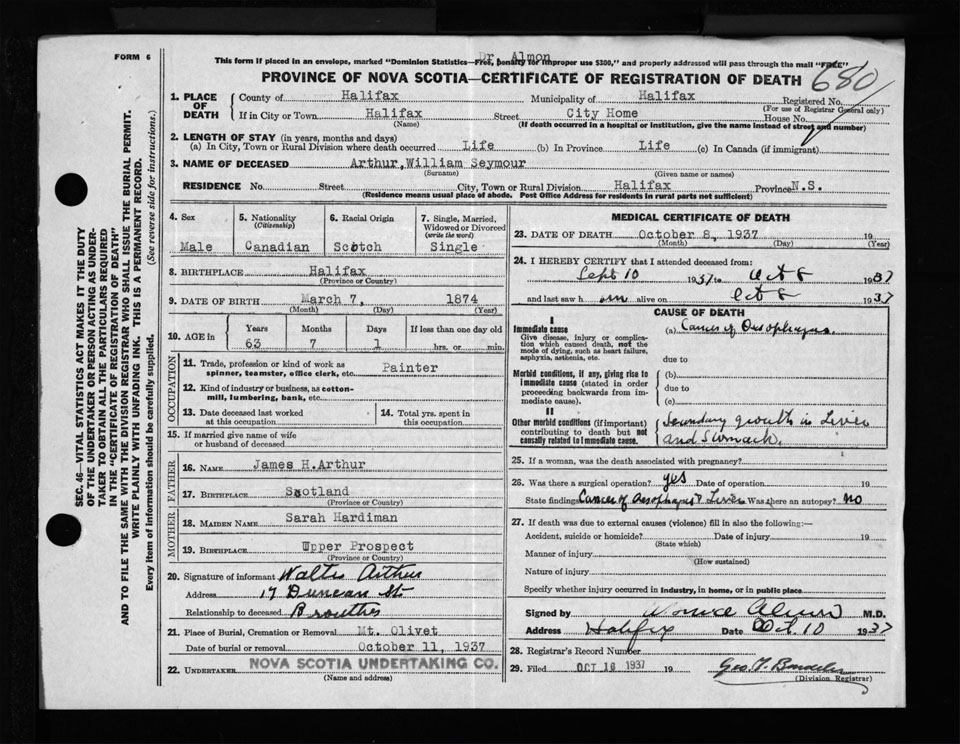 FORM 6
Dr. Almon
This form if placed in an envelope, marked "Dominion Statistics—Free, penalty for improper use $300," and properly addressed will pass through the mail "FREE"
PROVINCE OF NOVA SCOTIA—CERTIFICATE OF REGISTRATION OF DEATH
680
1. PLACE OF DEATH
County of Halifax Municipality of Halifax Registered No.
(For use of Registrar General only)
If in City or Town Halifax Street City Home House No.
(Name) (If death occurred in a hospital or institution, give the name instead of street and number)
2. LENGTH OF STAY (in years, months and days)
(a) In City, Town or Rural Division where death occurred Life (b) In Province Life (c) In Canada (if immigrant)
3. NAME OF DECEASED Arthur, William Seymour
(Surname) (Given name or names)
RESIDENCE No. Street City, Town or Rural Division Halifax Province N.S.
(Residence means usual place of abode. Post Office Address for residents in rural parts not sufficient)
4. Sex
Male
5. Nationality
(Citizenship)
Canadian
6. Racial Origin
Scotch
7. Single, Married,
Widowed or Divorced
(write the word)
Single
8. BIRTHPLACE Halifax
(Province or Country)
9. DATE OF BIRTH March 7, 1874
(Month) (Day) (Year)
10. AGE in
Years Months Days If less than one day old
63 7 1 hrs. or min.
OCCUPATION
11. Trade, profession or kind of work as
spinner, teamster, office clerk, etc. Painter
12. Kind of industry or business, as cotton-
mill, lumbering, bank, etc.
13. Date deceased last worked
at this occupation
14. Total yrs. spent in
this occupation
15. If married give name of wife
or husband of deceased
FATHER
16. NAME James H.Arthur
17. BIRTHPLACE Scotland
(Province or Country)
MOTHER
18. MAIDEN NAME Sarah Hardiman
19. BIRTHPLACE Upper Prospect
(Province or Country)
20. Signature of informant Walter Arthur
Address 17 Duncan St
Relationship to deceased Brouther
21. Place of Burial, Cremation or Removal Mt. Olivet
Date of burial or removal October 11, 1937
22. UNDERTAKER NOVA SCOTIA UNDERTAKING CO.
(Name and address)
MEDICAL CERTIFICATE OF DEATH
23. DATE OF DEATH October 8, 1937 19
(Month) (Day) (Year)
24. I HEREBY CERTIFY that I attended deceased from:
Sept 10 1937 to Oct 8 1937
and last saw h im alive on Oct 8 1937
CAUSE OF DEATH
I
Immediate cause
Give disease, injury or complica-
tion which caused death, not the
mode of dying, such as heart failure,
asphyxia, asthenia, etc.
(a) Cancer of Oesophagus
due to
Morbid conditions, if any, giving rise to
immediate cause (stated in order
proceeding backwards from im-
mediate cause).
(b)
due to
(c)
II
Other morbid conditions (if important)
contributing to death but not
causally related to immediate cause.
Secondary growth in Liver
and Stomach.
25. If a woman, was the death associated with pregnancy?
26. Was there a surgical operation? yes Date of operation 19
State findings Cancer of Oesophagus & Liver Was there an autopsy? no
27. If death was due to external causes (violence) fill in also the following:—
Accident, suicide or homicide? Date of injury 19
(State which)
Manner of injury
(How sustained)
Nature of injury
Specify whether injury occurred in industry, in home, or in public place
Signed by Almon M.D.
Address Halifax Date Oct. 10 1937
28. Registrar's Record Number
29. Filed OCT 16 1937 19 Geo. T.
(Division Registrar)
SEC. 46—VITAL STATISTICS ACT MAKES IT THE DUTY
OF THE UNDERTAKER OR PERSON ACTING AS UNDER-
TAKER TO OBTAIN ALL THE PARTICULARS REQUIRED
IN THE "CERTIFICATE OF REGISTRATION OF DEATH"
AND TO FILE THE SAME WITH THE DIVISION REGISTRAR WHO SHALL ISSUE THE BURIAL PERMIT.
WRITE PLAINLY WITH UNFADING INK. THIS IS A PERMANENT RECORD.
Every item of information should be carefully supplied. (See reverse side for instructions.)